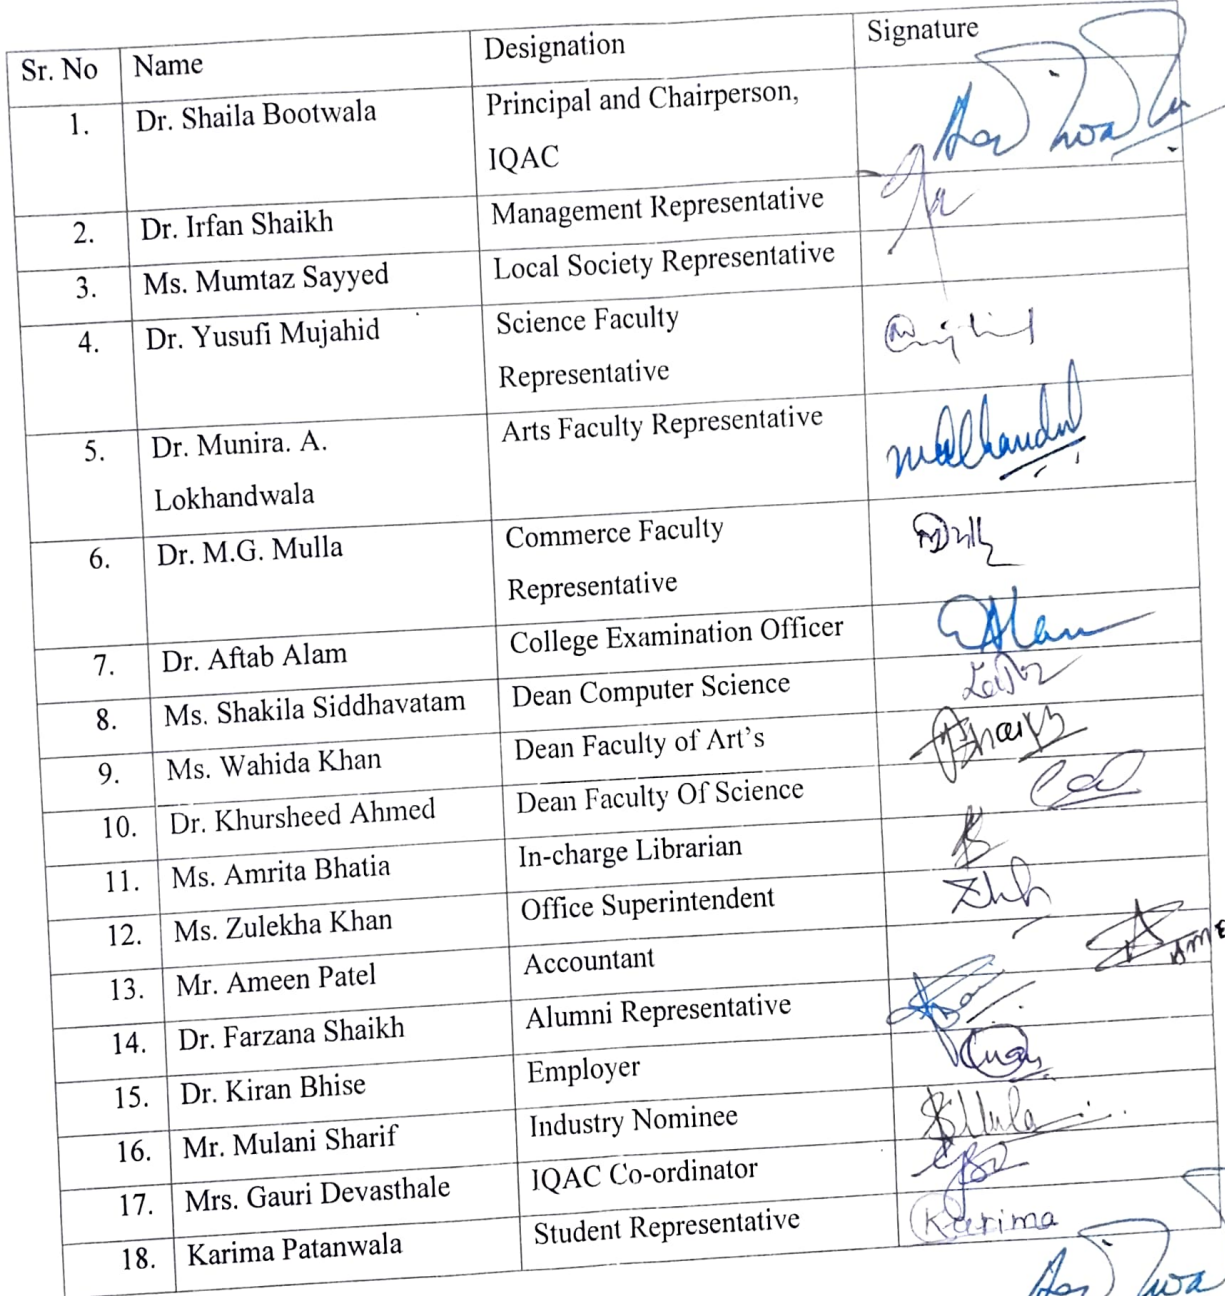 Sr. No Name Designation Signature
1. Dr. Shaila Bootwala Principal and Chairperson,
IQAC
2. Dr. Irfan Shaikh Management Representative
3. Ms. Mumtaz Sayyed Local Society Representative
4. Dr. Yusufi Mujahid Science Faculty
Representative
5. Dr. Munira. A. Arts Faculty Representative
Lokhandwala
6. Dr. M.G. Mulla Commerce Faculty
Representative
7. Dr. Aftab Alam College Examination Officer
8. Ms. Shakila Siddhavatam Dean Computer Science
9. Ms. Wahida Khan Dean Faculty of Art's
10. Dr. Khursheed Ahmed Dean Faculty Of Science
11. Ms. Amrita Bhatia In-charge Librarian
12. Ms. Zulekha Khan Office Superintendent
13. Mr. Ameen Patel Accountant
14. Dr. Farzana Shaikh Alumni Representative
15. Dr. Kiran Bhise Employer
16. Mr. Mulani Sharif Industry Nominee
17. Mrs. Gauri Devasthale IQAC Co-ordinator
18. Karima Patanwala Student Representative Karima